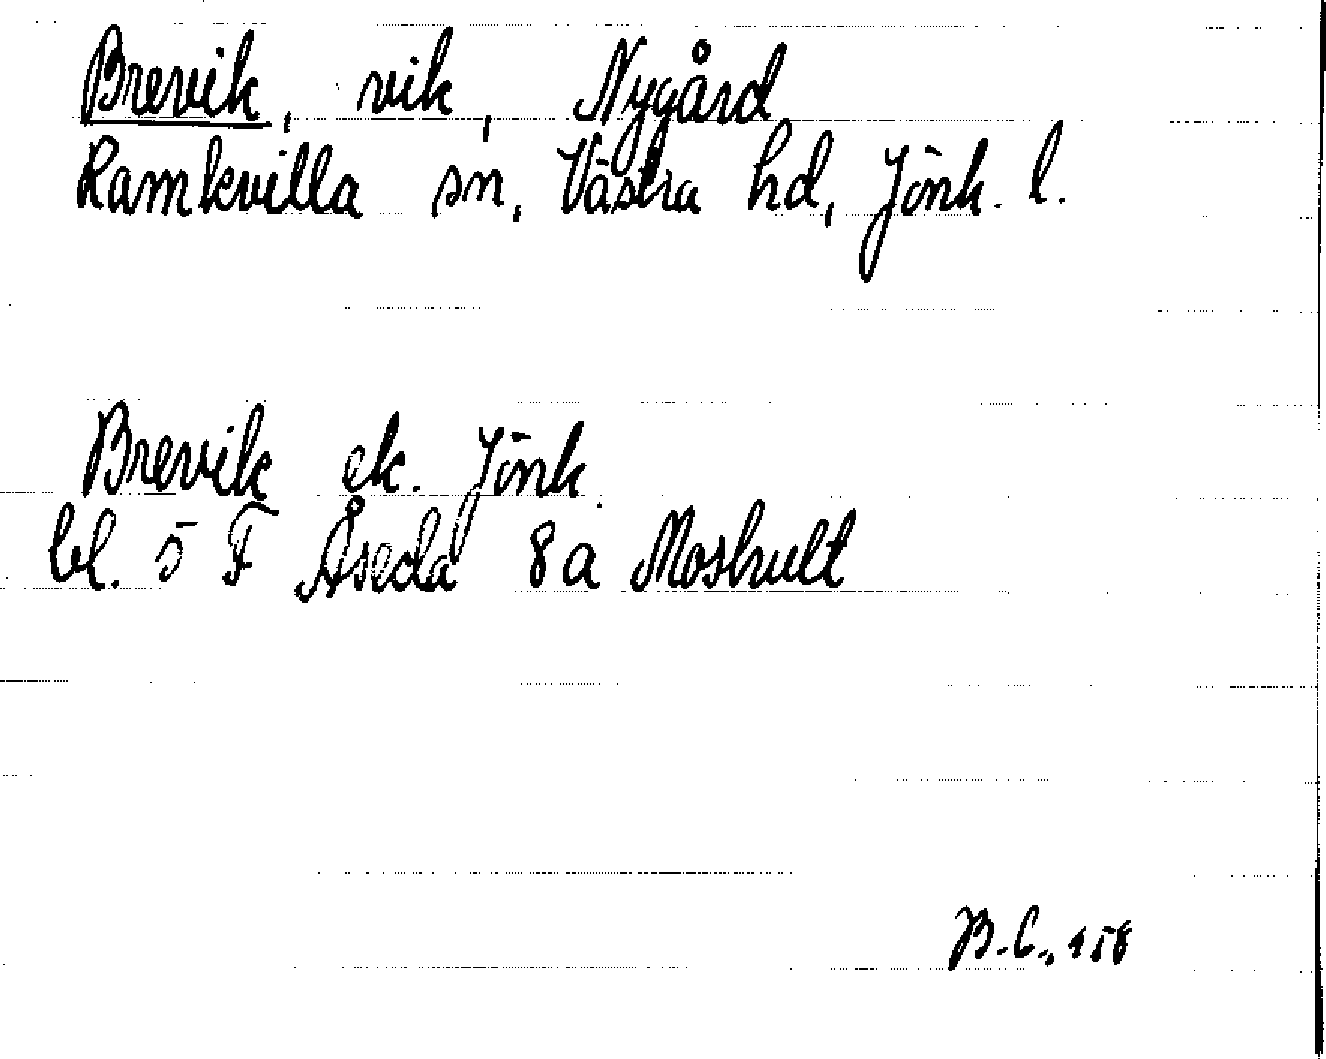 Brevik, vik, Nygård
Ramkvilla sn, Västra hd, Jönk. l.
Brevik ek. Jönk.
bl. 5 F Åseda 8a Moshult
B.C., 158